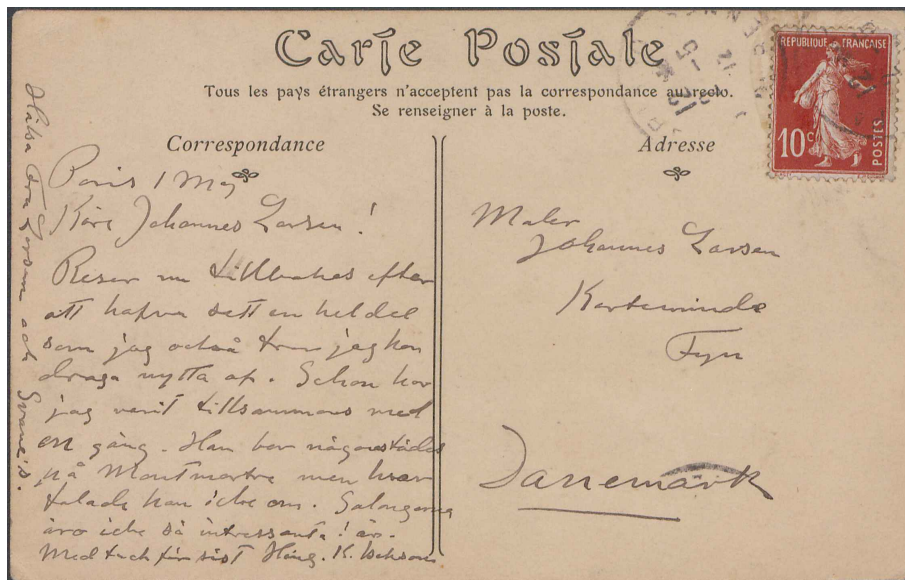 Carte Postale
Tous les pays étrangers n'acceptent pas la correspondance au recto.
Se renseigner à la poste.
REPUBLIQUE FRANÇAISE
10c
POSTES
Correspondance
Paris 1 Maj
Käre Johannes Larsen!
Reser nu tillbakes efter
att hafva sett en hel del
som jag också tror jag kan
draga nytta af. Schou har
jag varit tillsammans med
en gång. Han bor någonstädes
på Montmartre men hvar
talade han icke om. Salongerna
äro icke så intressanta i år.
Med tack för sist Häng. K.
Hälsa Fru Larsen och Swane's.
Adresse
Maler
Johannes Larsen
Kerteminde
Fyn
Danemark